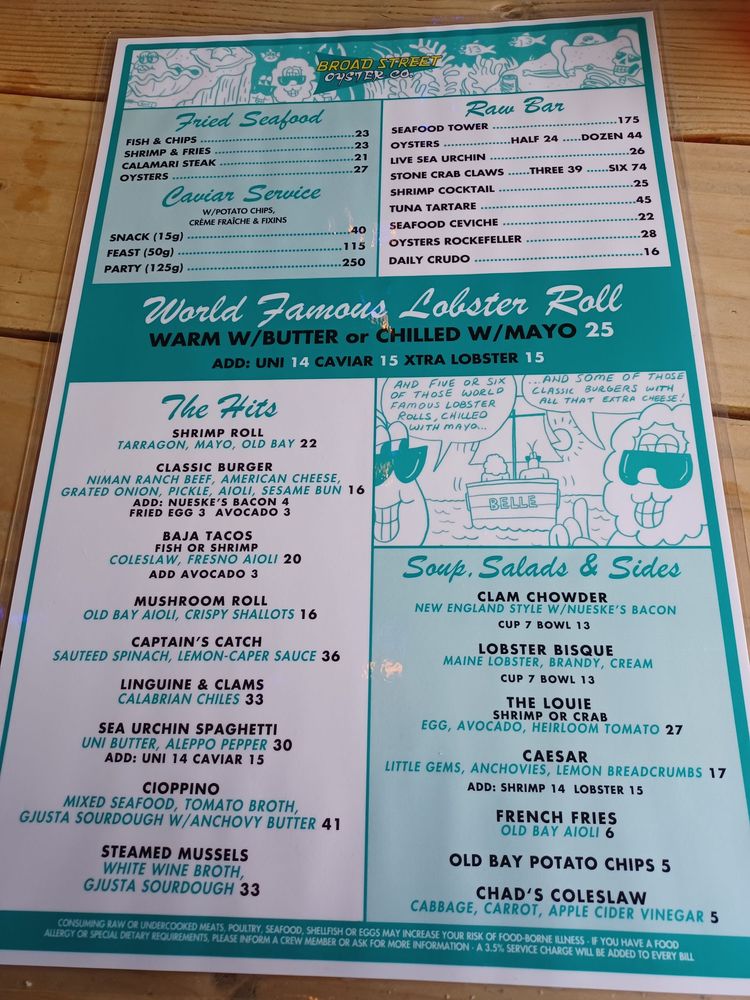 BROAD STREET
OYSTER CO.
Fried Seafood
FISH & CHIPS ........ 23
SHRIMP & FRIES ........ 23
CALAMARI STEAK ........ 21
OYSTERS ........ 27
Caviar Service
W/POTATO CHIPS,
CRÈME FRAÎCHE & FIXINS
SNACK (15g) ........ 40
FEAST (50g) ........ 115
PARTY (125g) ........ 250
Raw Bar
SEAFOOD TOWER ........ 175
OYSTERS ........ HALF 24 ..... DOZEN 44
LIVE SEA URCHIN ........ 26
STONE CRAB CLAWS ...... THREE 39 ...... SIX 74
SHRIMP COCKTAIL ........ 25
TUNA TARTARE ........ 45
SEAFOOD CEVICHE ........ 22
OYSTERS ROCKEFELLER ........ 28
DAILY CRUDO ........ 16
World Famous Lobster Roll
WARM W/BUTTER or CHILLED W/MAYO 25
ADD: UNI 14 CAVIAR 15 XTRA LOBSTER 15
The Hits
SHRIMP ROLL
TARRAGON, MAYO, OLD BAY 22
CLASSIC BURGER
NIMAN RANCH BEEF, AMERICAN CHEESE,
GRATED ONION, PICKLE, AIOLI, SESAME BUN 16
ADD: NUESKE'S BACON 4
FRIED EGG 3 AVOCADO 3
BAJA TACOS
FISH OR SHRIMP
COLESLAW, FRESNO AIOLI 20
ADD AVOCADO 3
MUSHROOM ROLL
OLD BAY AIOLI, CRISPY SHALLOTS 16
CAPTAIN'S CATCH
SAUTEED SPINACH, LEMON-CAPER SAUCE 36
LINGUINE & CLAMS
CALABRIAN CHILES 33
SEA URCHIN SPAGHETTI
UNI BUTTER, ALEPPO PEPPER 30
ADD: UNI 14 CAVIAR 15
CIOPPINO
MIXED SEAFOOD, TOMATO BROTH,
GJUSTA SOURDOUGH W/ANCHOVY BUTTER 41
STEAMED MUSSELS
WHITE WINE BROTH,
GJUSTA SOURDOUGH 33
AND FIVE OR SIX
OF THOSE WORLD
FAMOUS LOBSTER
ROLLS, CHILLED
WITH MAYO...
...AND SOME OF THOSE
CLASSIC BURGERS WITH
ALL THAT EXTRA CHEESE!
BELLE
Soup, Salads & Sides
CLAM CHOWDER
NEW ENGLAND STYLE W/NUESKE'S BACON
CUP 7 BOWL 13
LOBSTER BISQUE
MAINE LOBSTER, BRANDY, CREAM
CUP 7 BOWL 13
THE LOUIE
SHRIMP OR CRAB
EGG, AVOCADO, HEIRLOOM TOMATO 27
CAESAR
LITTLE GEMS, ANCHOVIES, LEMON BREADCRUMBS 17
ADD: SHRIMP 14 LOBSTER 15
FRENCH FRIES
OLD BAY AIOLI 6
OLD BAY POTATO CHIPS 5
CHAD'S COLESLAW
CABBAGE, CARROT, APPLE CIDER VINEGAR 5
CONSUMING RAW OR UNDERCOOKED MEATS, POULTRY, SEAFOOD, SHELLFISH OR EGGS MAY INCREASE YOUR RISK OF FOOD-BORNE ILLNESS - IF YOU HAVE A FOOD
ALLERGY OR SPECIAL DIETARY REQUIREMENTS, PLEASE INFORM A CREW MEMBER OR ASK FOR MORE INFORMATION - A 3.5% SERVICE CHARGE WILL BE ADDED TO EVERY BILL